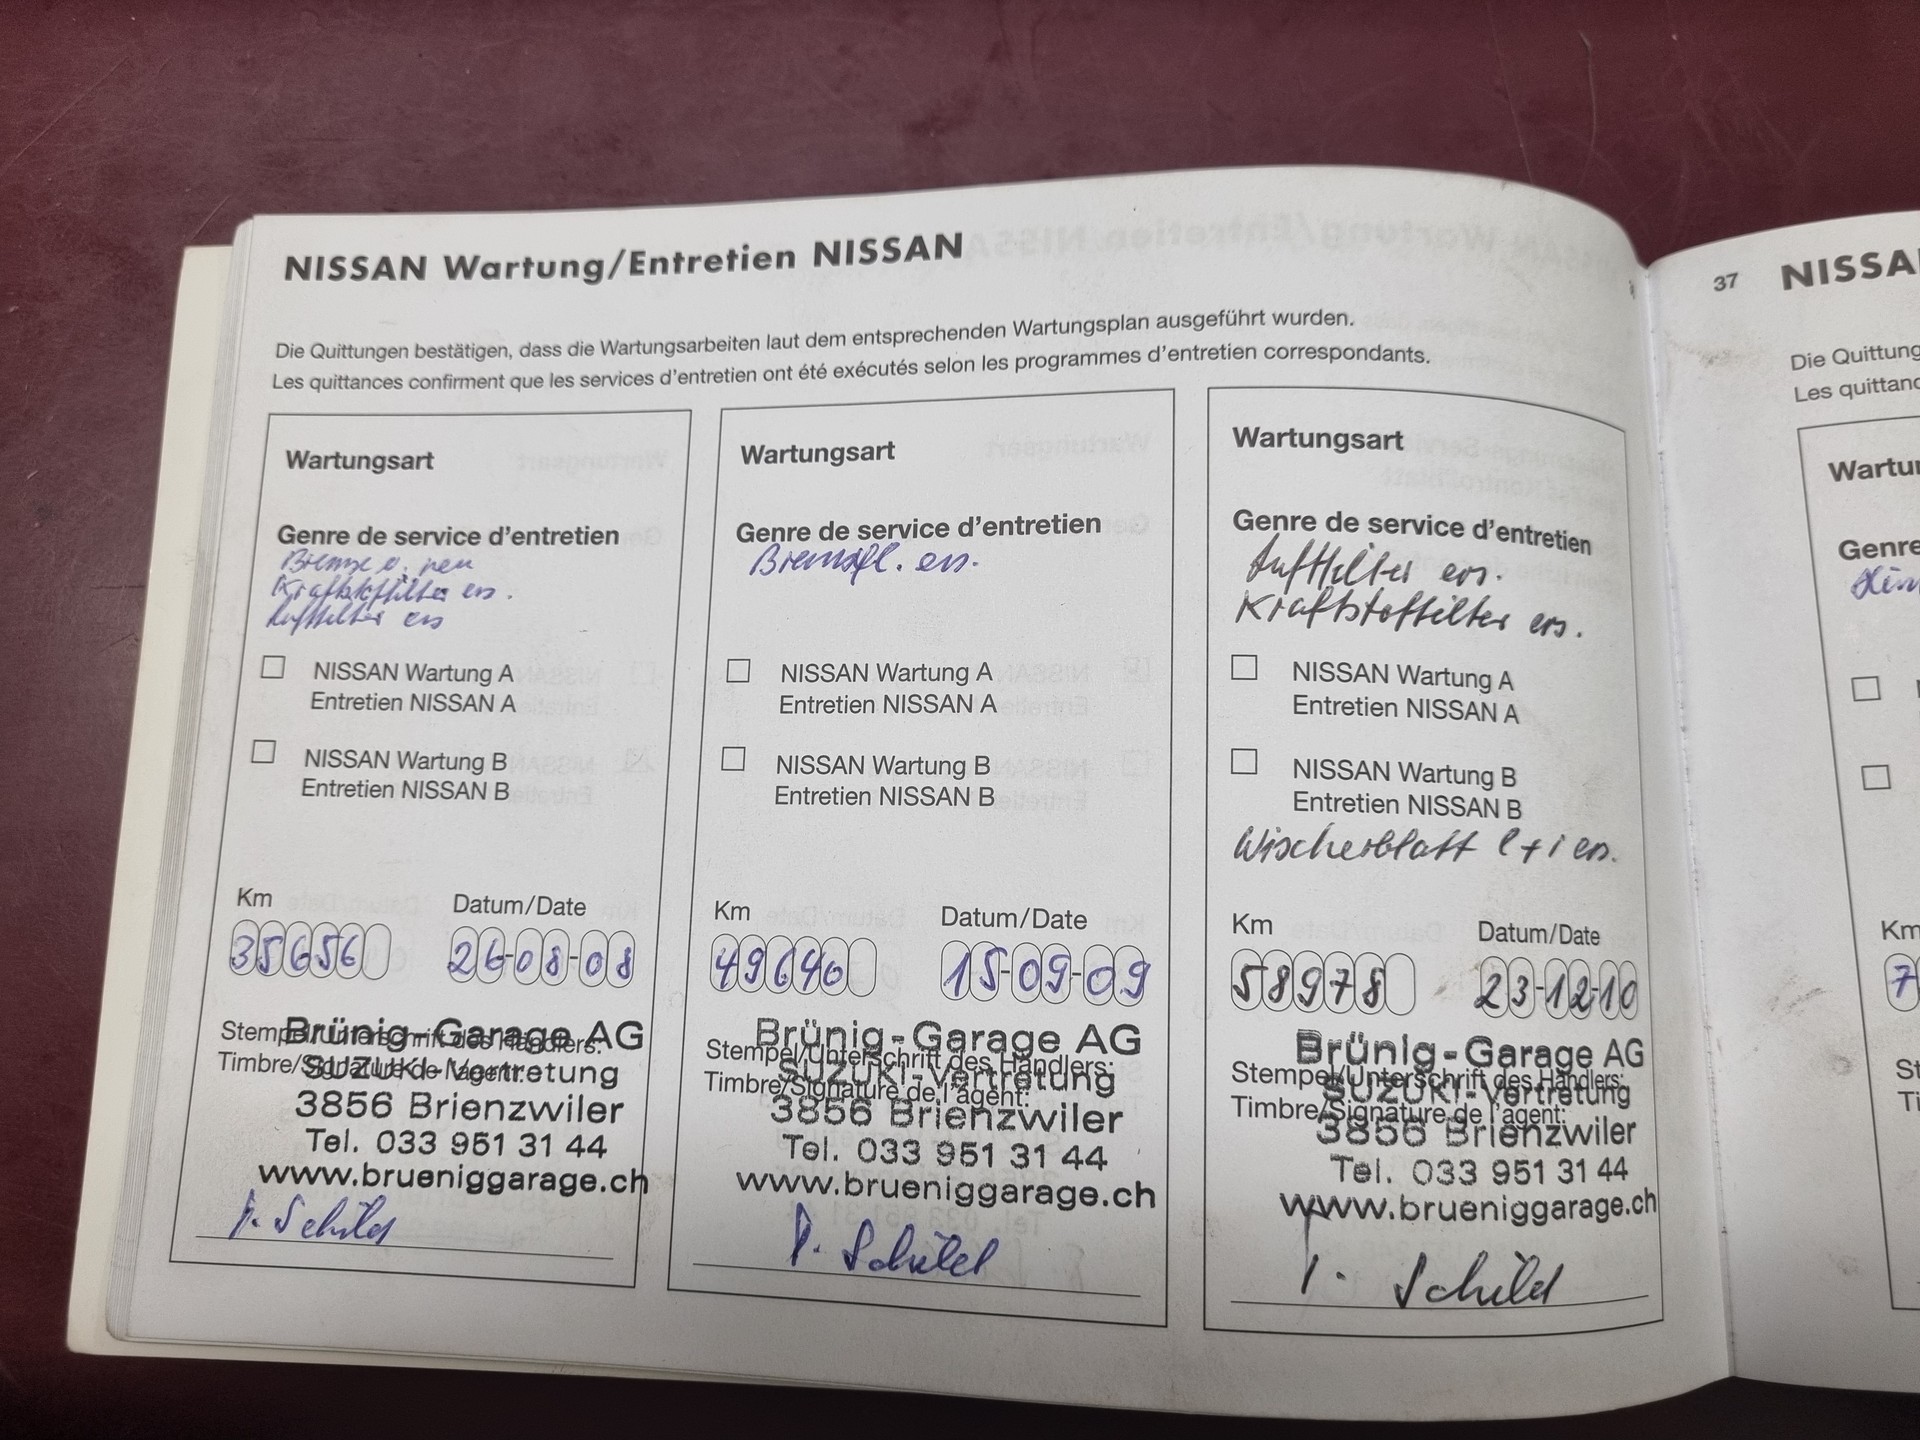 NISSAN Wartung/Entretien NISSAN
Die Quittungen bestätigen, dass die Wartungsarbeiten laut dem entsprechenden Wartungsplan ausgeführt wurden.
Les quittances confirment que les services d'entretien ont été exécutés selon les programmes d'entretien correspondants.
Wartungsart
Genre de service d'entretien
neu
Kraftstoffilter ers.
Luftfilter ers
NISSAN Wartung A
Entretien NISSAN A
NISSAN Wartung B
Entretien NISSAN B
Km
Datum/Date
35656
26-08-08
Stempel/Unterschrift des Händlers:
Timbre/Signature de l'agent:
Brünig-Garage AG
SUZUKI-Vertretung
3856 Brienzwiler
Tel. 033 951 31 44
www.brueniggarage.ch
P. Schild
Wartungsart
Genre de service d'entretien
Bremsfl. ers.
NISSAN Wartung A
Entretien NISSAN A
NISSAN Wartung B
Entretien NISSAN B
Km
Datum/Date
49640
15-09-09
Stempel/Unterschrift des Händlers:
Timbre/Signature de l'agent:
Brünig-Garage AG
SUZUKI-Vertretung
3856 Brienzwiler
Tel. 033 951 31 44
www.brueniggarage.ch
P. Schild
Wartungsart
Genre de service d'entretien
Luftfilter ers.
Kraftstoffilter ers.
NISSAN Wartung A
Entretien NISSAN A
NISSAN Wartung B
Entretien NISSAN B
Wischerblatt l+r ers.
Km
Datum/Date
58978
23-12-10
Stempel/Unterschrift des Händlers:
Timbre/Signature de l'agent:
Brünig-Garage AG
SUZUKI-Vertretung
3856 Brienzwiler
Tel. 033 951 31 44
www.brueniggarage.ch
P. Schild
37
NISSA
Die Quittung
Les quittanc
Wartu
Genre
Km
7
St
Ti